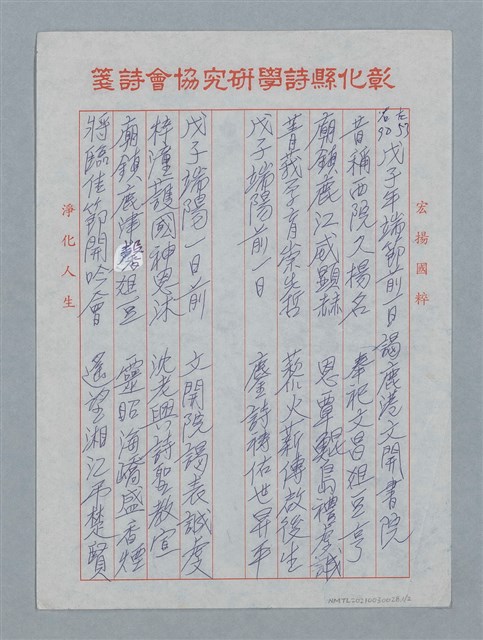 彰化縣詩學研究協會詩箋
宏揚國粹
左53
右90
戊子年端節前一日謁鹿港文開書院
昔稱西院久揚名 奉祀文昌俎豆亨
廟鎮鹿江咸顯赫 恩覃鯤島禮虔誠
菁莪孕育崇先哲 藜火薪傳啟後生
戊子端陽前一日 塵詩禱佑世昇平
戊子端陽一日前 文開院謁表誠虔
梓潼護國神恩沐 沈老興詩聖教宣
廟鎮鹿津馨俎豆 靈昭海嶠盛香煙
將臨佳節開吟會 遙望湘江弔楚賢
淨化人生